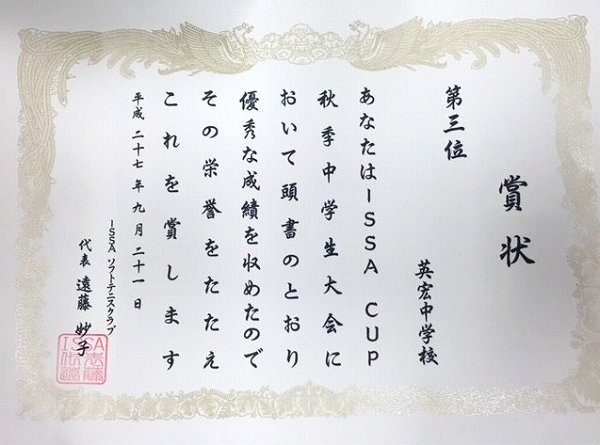 賞状
第三位
英宏中学校
あなたはISSA CUP
秋季中学生大会に
おいて頭書のとおり
優秀な成績を収めたので
その栄誉をたたえ
これを賞します
平成二十七年九月二十一日
ISSA ソフトテニスクラブ
代表 遠藤 妙子